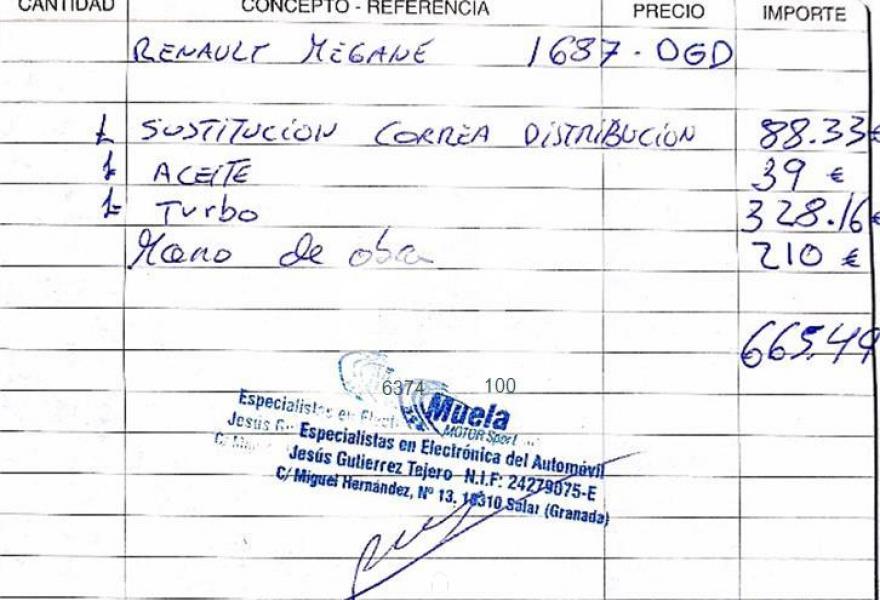 CANTIDAD CONCEPTO - REFERENCIA PRECIO IMPORTE
RENAULT MEGANE 1687 - DGD
1 SUSTITUCION CORREA DISTRIBUCION 88.33€
1 ACEITE 39 €
1 Turbo 328.16€
Mano de obra 210 €
665.49
6374 100
Muela
MOTOR Sport
Especialistas en Elect
Jesús G
Especialistas en Electrónica del Automóvil
Jesús Gutierrez Tejero N.I.F: 24279075-E
C/ Miguel Hernández, Nº 13. 18310 Salar (Granada)